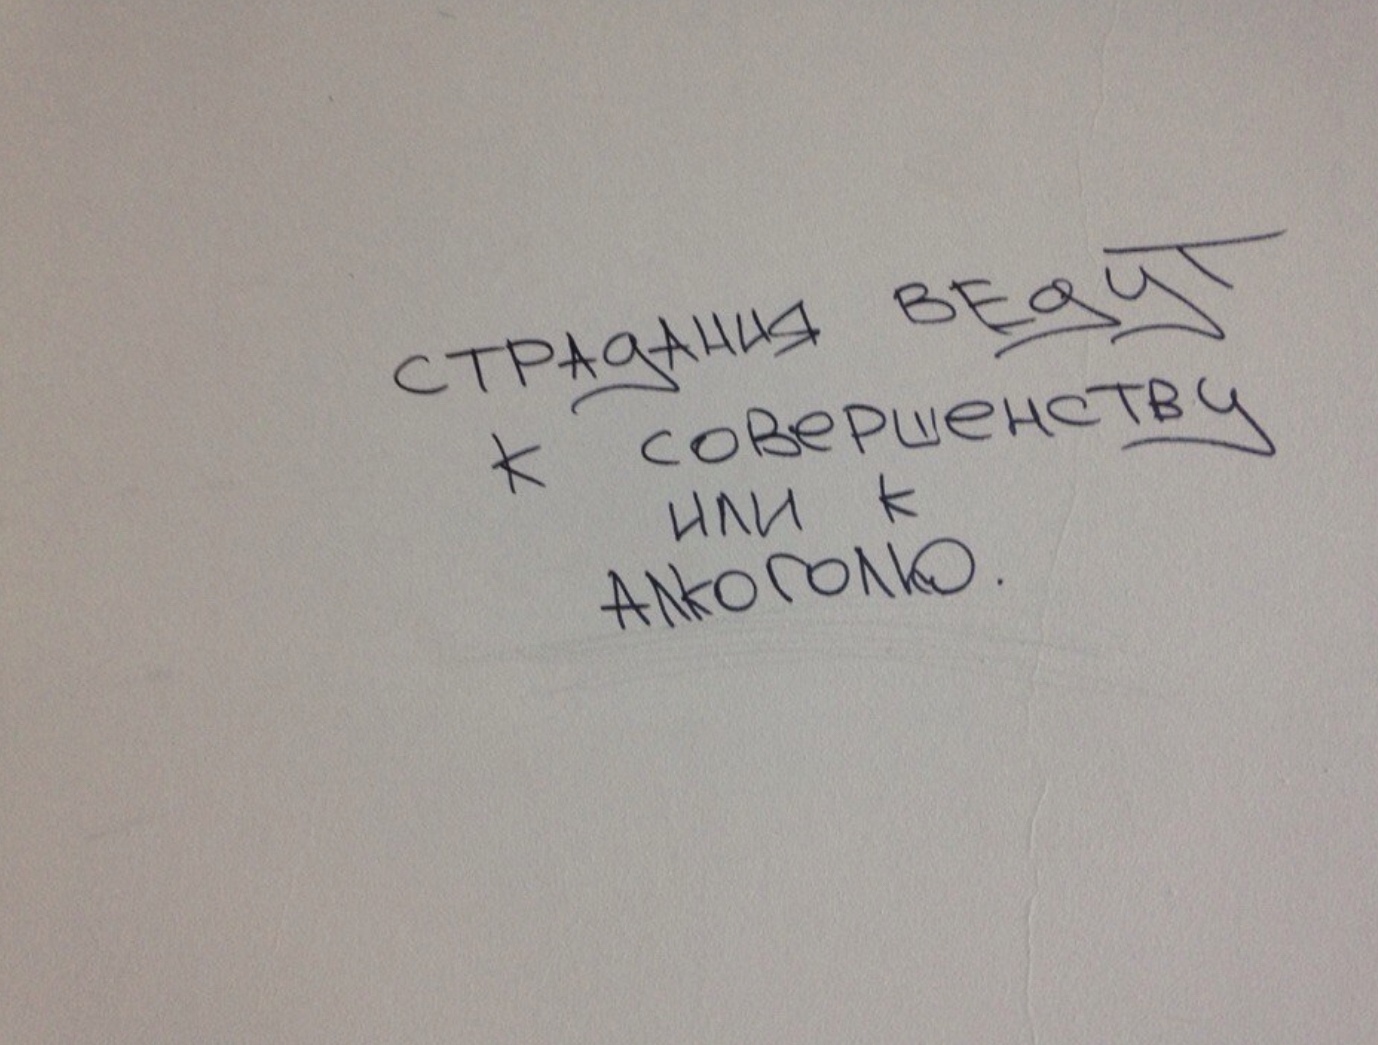 СТРАДАНИЯ ВЕДУТ
К СОВЕРШЕНСТВУ
ИЛИ К
АЛКОГОЛЮ.